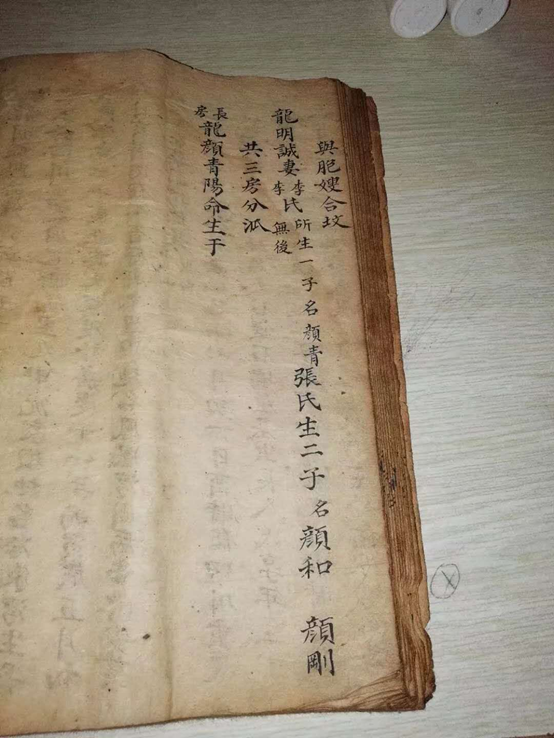 與胞嫂合坟
龍明誠妻李氏所生一子名顔青張氏生二子名顔和 顔剛
李 無後
共三房分派
長房龍顔青陽命生于